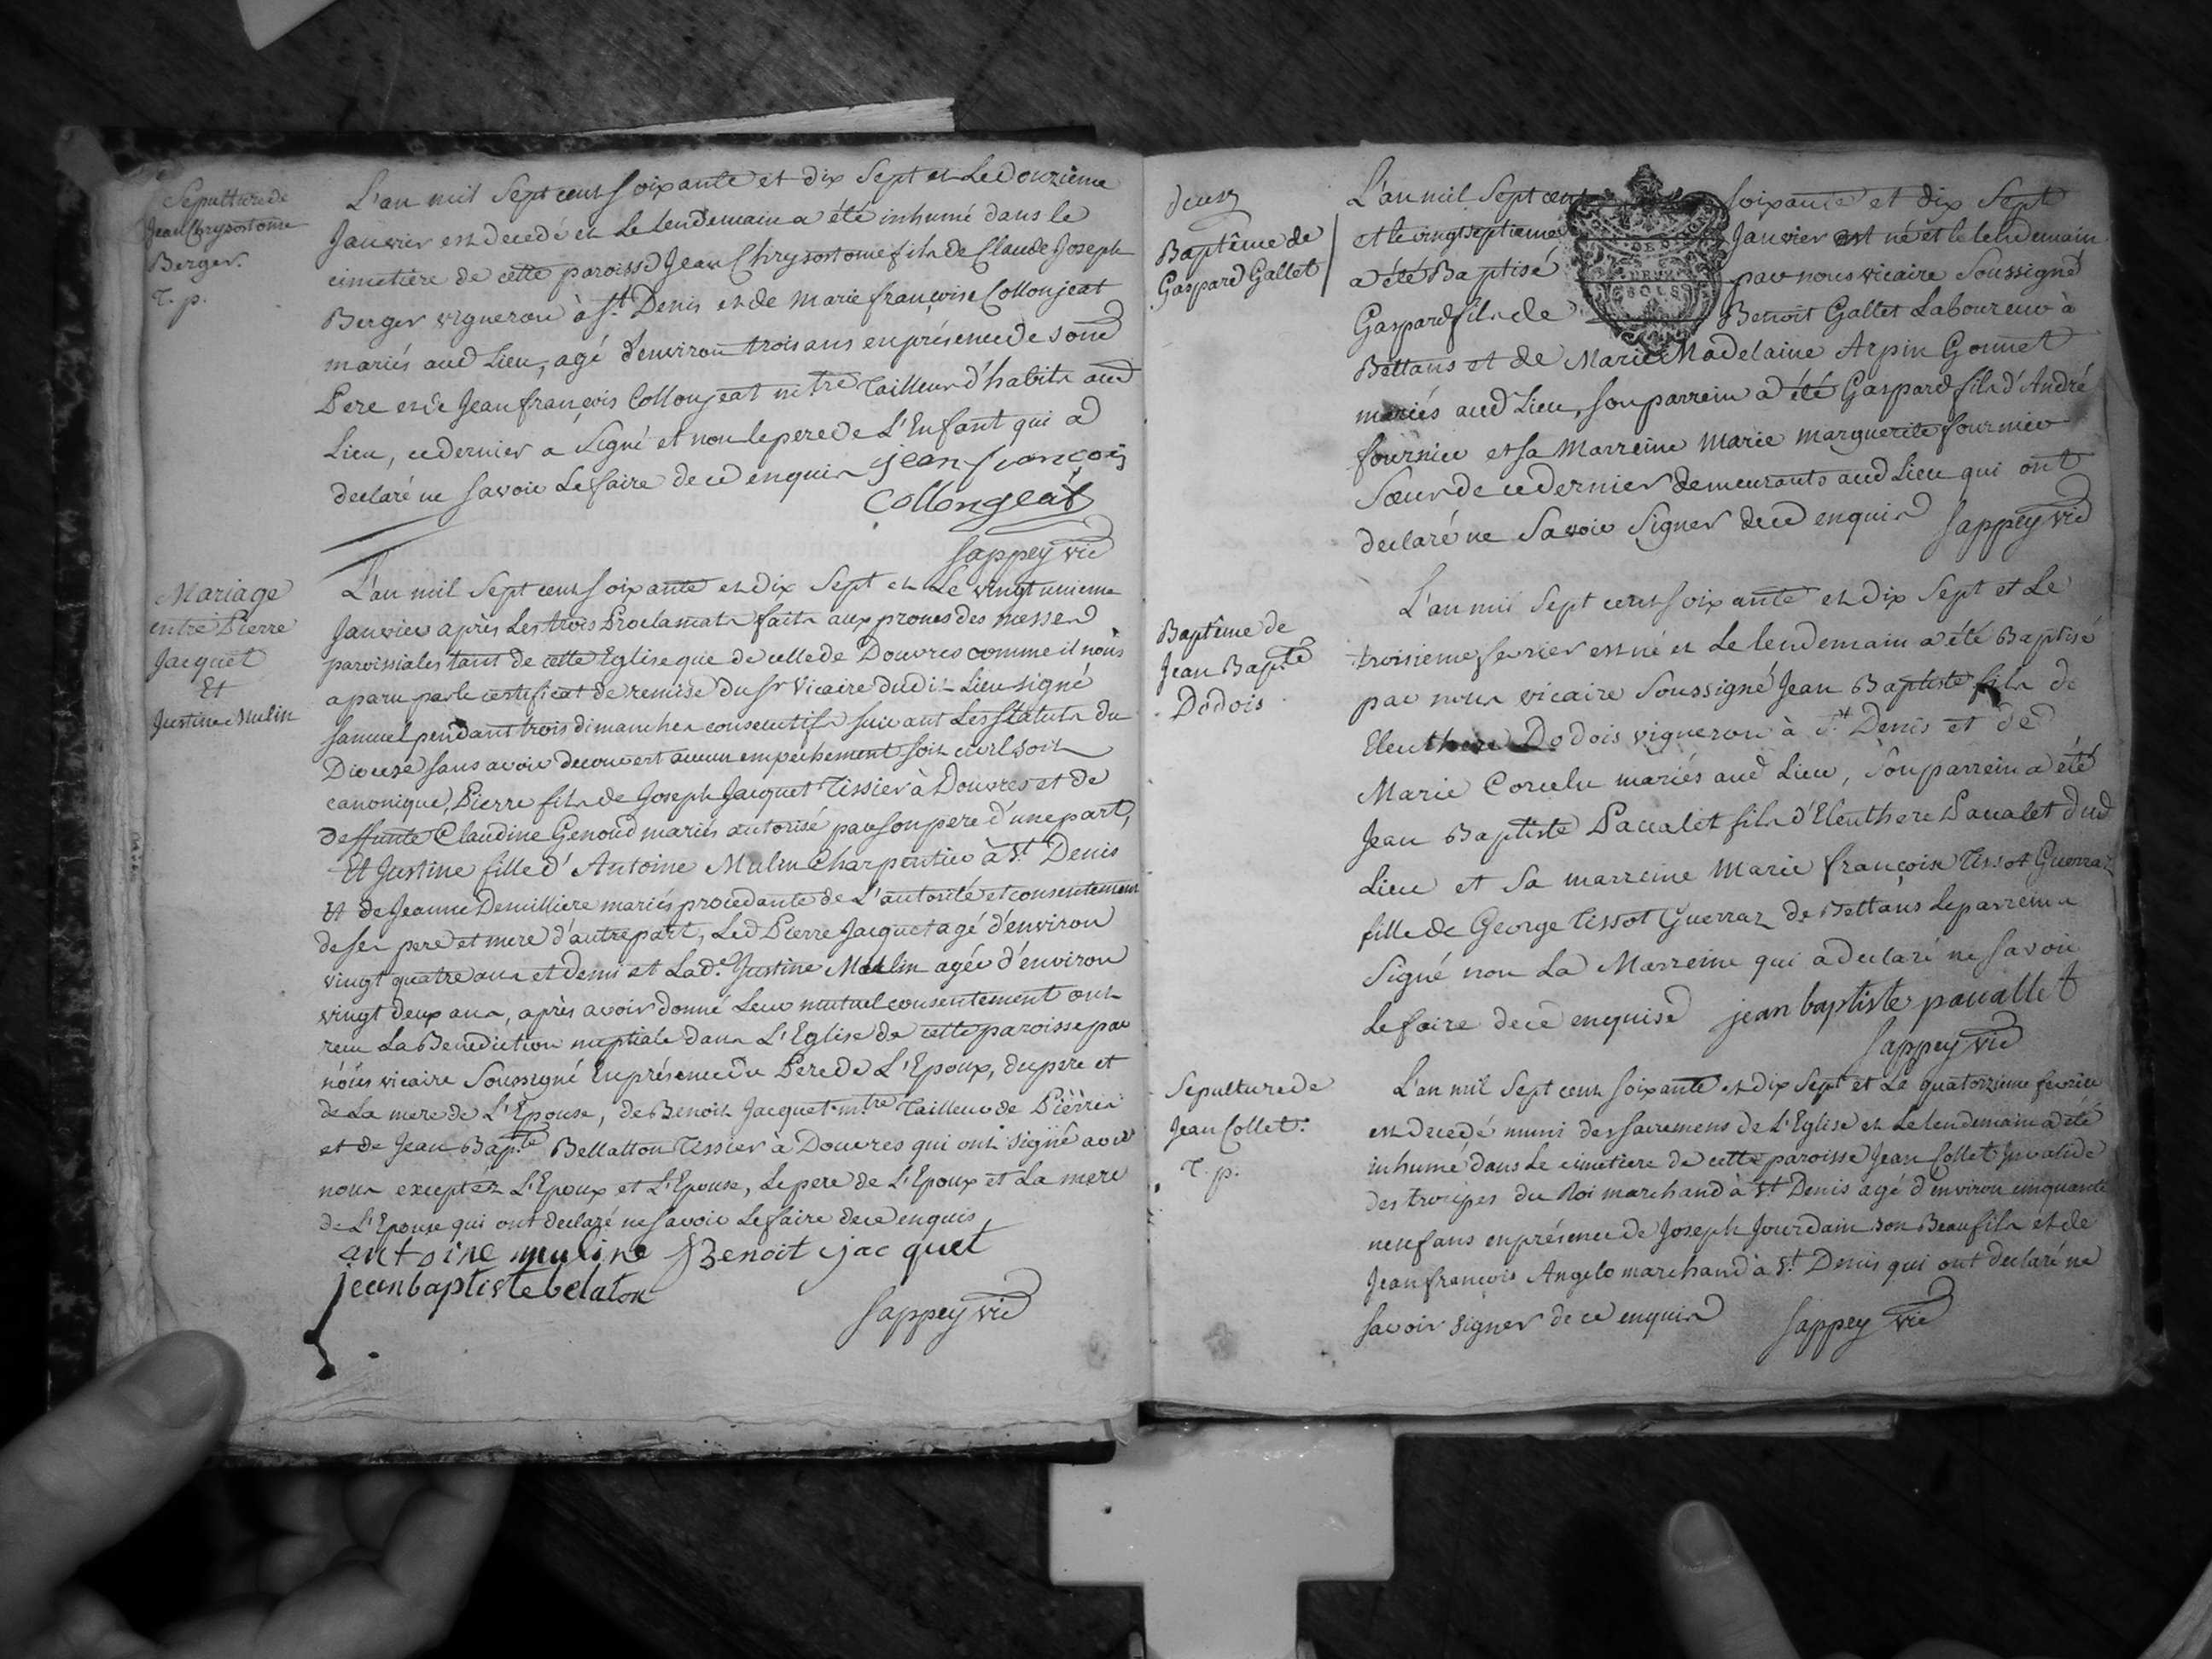 Sepulture de
Jean Chrysostome
Berger.
T. p.
L'an mil Sept cent soixante et dix Sept et Le Douzieme
Janvier est decedé et Le lendemain a été inhumé dans le
cimetière de cette paroisse Jean Chrysostome fils de Claude Joseph
Berger vigneron à St. Denis et de Marie françoise Collonjeat
mariés aud Lieu, agé d'environ trois ans en présence de son
Pere et de Jean françois Collonjeat mtre Tailleur d'habits aud
Lieu, ce dernier a Signé et non le pere de L'Enfant qui a
declaré ne savoir Le faire de ce enquis jean francois
collongeat
Sappey vic
Mariage
entre Pierre
Jacquet
Et
Justine Mulin
L'an mil Sept cent soixante et dix Sept et Le vingt unieme
Janvier après Les trois Proclamats faits aux prones des messes
paroissiales tant de cette Eglise que de celle de Douvres comme il nous
a paru par le certificat de remise du Sr Vicaire dudit Lieu signé
Samuel pendant trois dimanches consecutifs suivant Les Statuts du
Diocese sans avoir decouvert aucun empechement soit civil soit
canonique, Pierre fils de Joseph Jacquet Tissier à Douvres et de
deffunte Claudine Genoud mariés autorisé par son pere d'une part,
Et Justine fille d'Antoine Mulin Charpentier à St. Denis
et de Jeanne Demilliere mariés procedante de L'autorité et consentement
de ses pere et mere d'autre part, Led Pierre Jacquet agé d'environ
vingt quatre ans et demi et Lad.e Justine Mulin agée d'environ
vingt deux ans, après avoir donné Leur mutuel consentement ont
reçu La Benediction nuptiale dans L'Eglise de cette paroisse par
nous vicaire Soussigné En présence du Pere de L'Epoux, du pere et
de La mere de L'Epouse, de Benoit Jacquet mtre Tailleur de Pierres
et de Jean Bapte Bellatton Tissier à Douvres qui ont signé avec
nous exceptez L'Epoux et L'Epouse, Le pere de L'Epoux et La mere
de L'Epouse qui ont declaré ne Savoir Le faire de ce enquis
antoine muline Benoit jacquet
jean baptiste belaton
Sappey vic
deux
Baptême de
Gaspard Gallet
L'an mil Sept cent soixante et dix Sept
et le vingt septieme Janvier est né et le lendemain
a été Baptisé par nous vicaire Soussigné
Gaspard fils de Benoit Gallet Laboureur à
Bettans et de Marie Madelaine Arpin Gonnet
mariés aud Lieu, son parrein a été Gaspard fils d'André
fournier et sa Marreine Marie Marguerite fournier
Sœur de ce dernier demeurants aud Lieu qui ont
declaré ne Savoir Signer de ce enquis Sappey vic
Baptême de
Jean Bapte
Dodois
L'an mil Sept cent soixante et dix Sept et Le
troisieme fevrier est né et Le lendemain a été Baptisé
par nous vicaire Soussigné Jean Baptiste fils de
Eleuthere Dodois vigneron à St Denis et de
Marie Corcelu mariés aud Lieu, Son parrein a été
Jean Baptiste Pacalet fils d'Eleuthere Pacalet dud
Lieu et Sa marreine Marie françoise Tissot Guerraz
fille de George Tissot Guerraz de Bettans Le parrein a
Signé non La Marreine qui a declaré ne savoir
Le faire de ce enquise jean baptiste pacallet
Sappey vic
Sepulture de
Jean Collet.
T. p.
L'an mil Sept cent soixante et dix Sept et Le quatorzieme fevrier
est decedé muni des sacremens de L'Eglise et Le lendemain a été
inhumé dans Le cimetiere de cette paroisse Jean Collet Invalide
des troupes du Roi marchand à St. Denis agé d'environ cinquante
neuf ans en présence de Joseph Jourdain son Beaufils et de
Jean françois Angelo marchand à St. Denis qui ont declaré ne
savoir signer de ce enquis Sappey vic